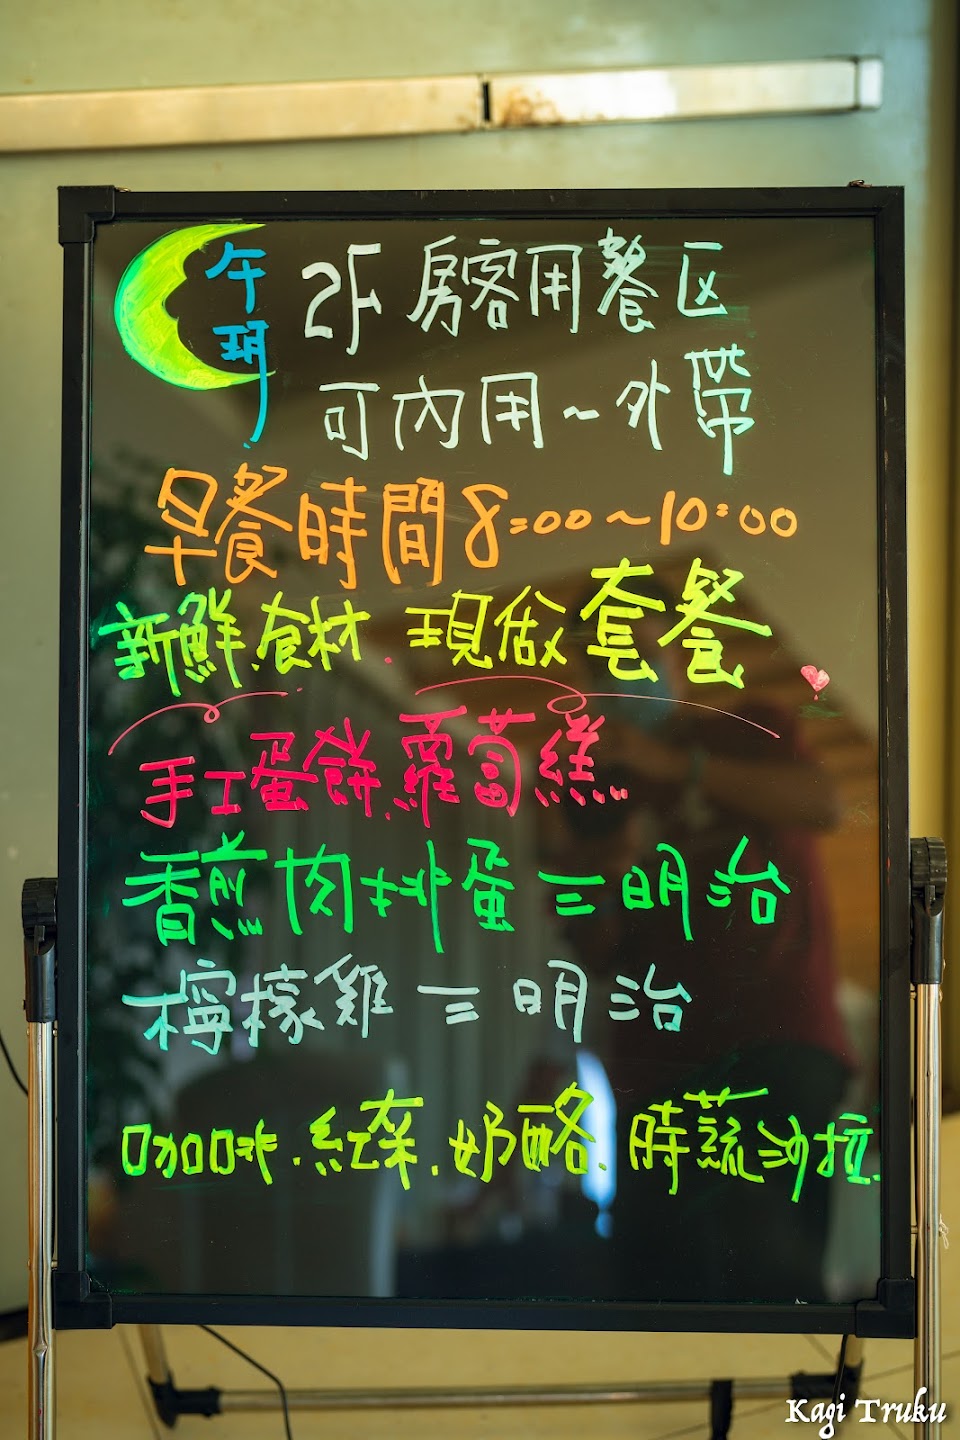 午玥
2F 房客用餐区
可內用～外帶
早餐時間8:00～10:00
新鮮.食材.現做套餐
手工蛋餅.蘿蔔糕..
香煎肉排蛋三明治
檸檬雞三明治
咖啡.紅茶.奶酪.時蔬沙拉.
Kagi Truku